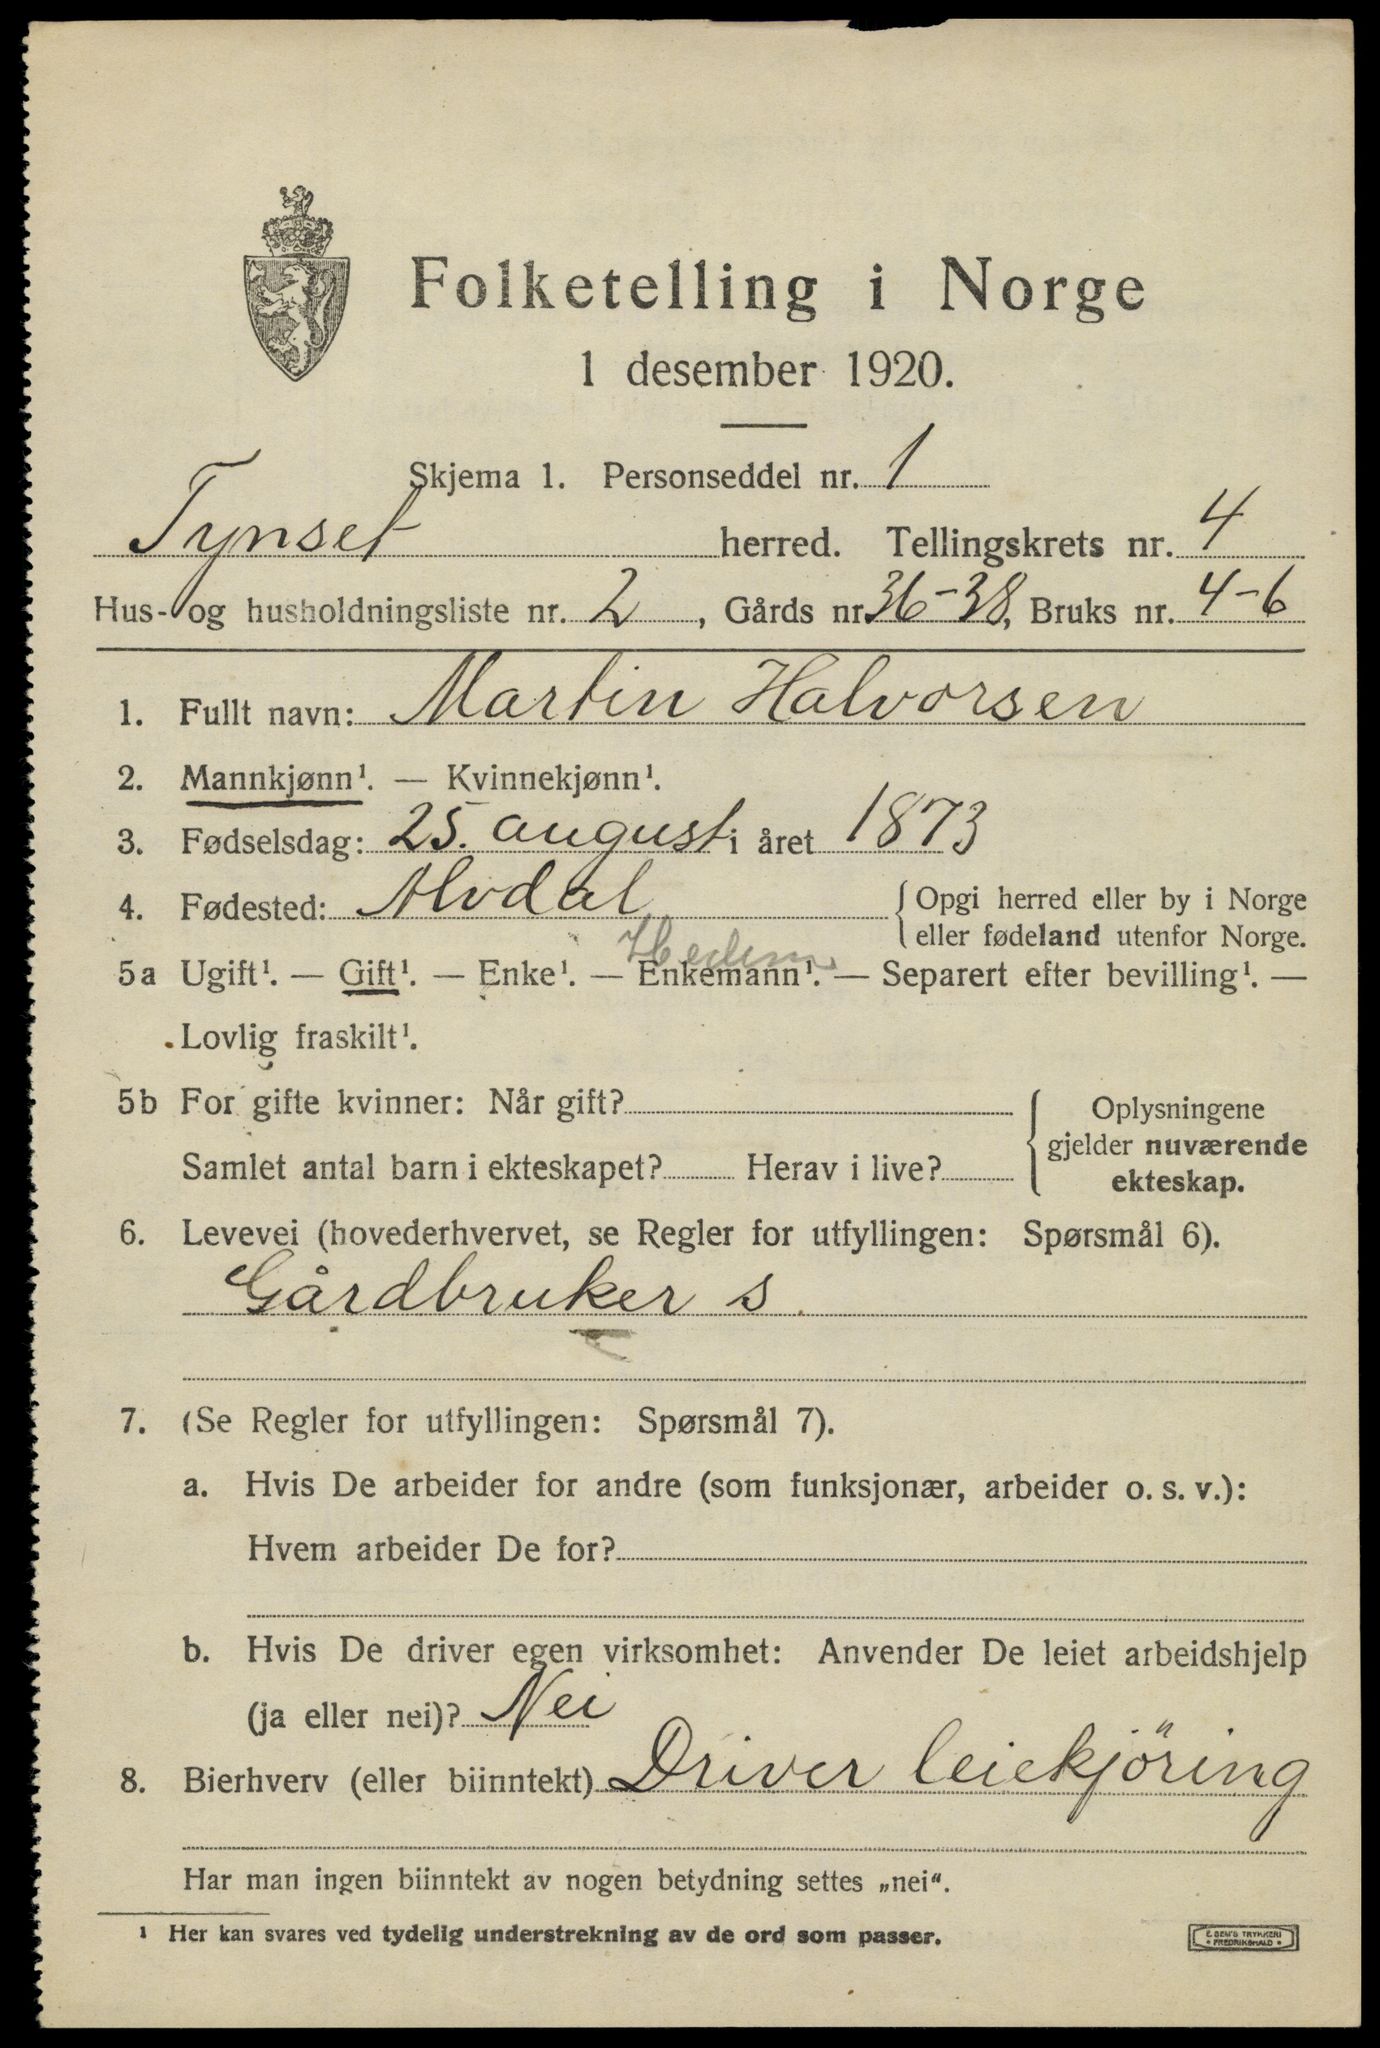 Folketelling i Norge
1 desember 1920.
Skjema 1. Personseddel nr. 1
Tynset herred. Tellingskrets nr. 4
Hus- og husholdningsliste nr. 2, Gårds nr. 36-38, Bruks nr. 4-6
1. Fullt navn: Martin Halvorsen
2. Mannkjønn¹. — Kvinnekjønn¹.
3. Fødselsdag: 25. august i året 1873
4. Fødested: Alvdal { Opgi herred eller by i Norge
eller fødeland utenfor Norge.
Hedm.
5a Ugift¹. — Gift¹. — Enke¹. — Enkemann¹. — Separert efter bevilling¹. —
Lovlig fraskilt¹.
5b For gifte kvinner: Når gift? { Oplysningene
gjelder nuværende
Samlet antal barn i ekteskapet? Herav i live? ekteskap.
6. Levevei (hovederhvervet, se Regler for utfyllingen: Spørsmål 6).
Gårdbruker s.
7. (Se Regler for utfyllingen: Spørsmål 7).
a. Hvis De arbeider for andre (som funksjonær, arbeider o. s. v.):
Hvem arbeider De for?
b. Hvis De driver egen virksomhet: Anvender De leiet arbeidshjelp
(ja eller nei)? Nei
8. Bierhverv (eller biinntekt) Driver leiekjöring
Har man ingen biinntekt av nogen betydning settes „nei“.
¹ Her kan svares ved tydelig understrekning av de ord som passer.
E. SEM'S TRYKKERI
• FREDRIKSHALD •